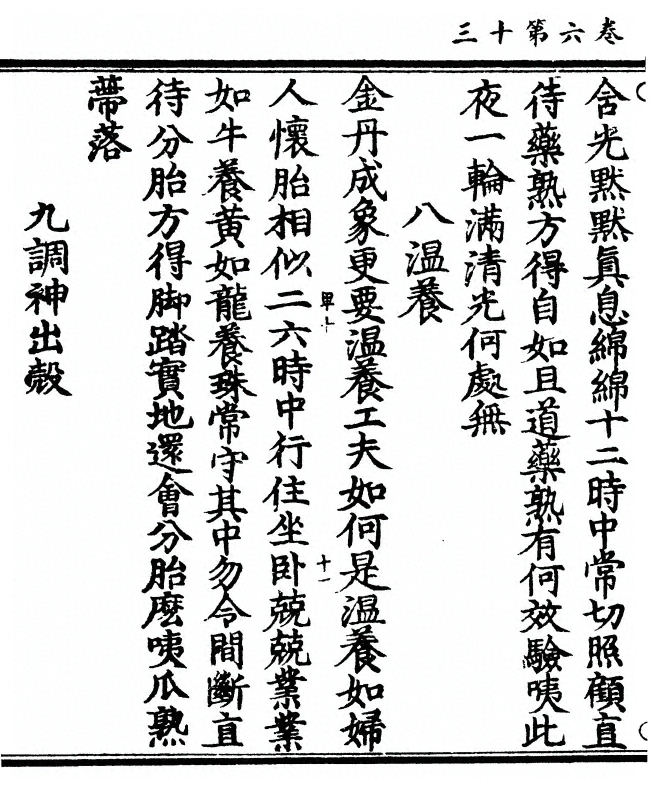 三十第六卷
舍光默默眞息綿綿十二時中常切照顧直
待藥熟方得自如且道藥熟有何效驗咦此
夜一輪滿清光何處無
八溫養
金丹成象更要溫養工夫如何是溫養如婦
人懷胎相似二六時中行住坐卧兢兢業業
如牛養黃如龍養珠常守其中勿令間斷直
待分胎方得脚踏實地還會分胎麽咦瓜熟
蔕落
九調神出殼
十一